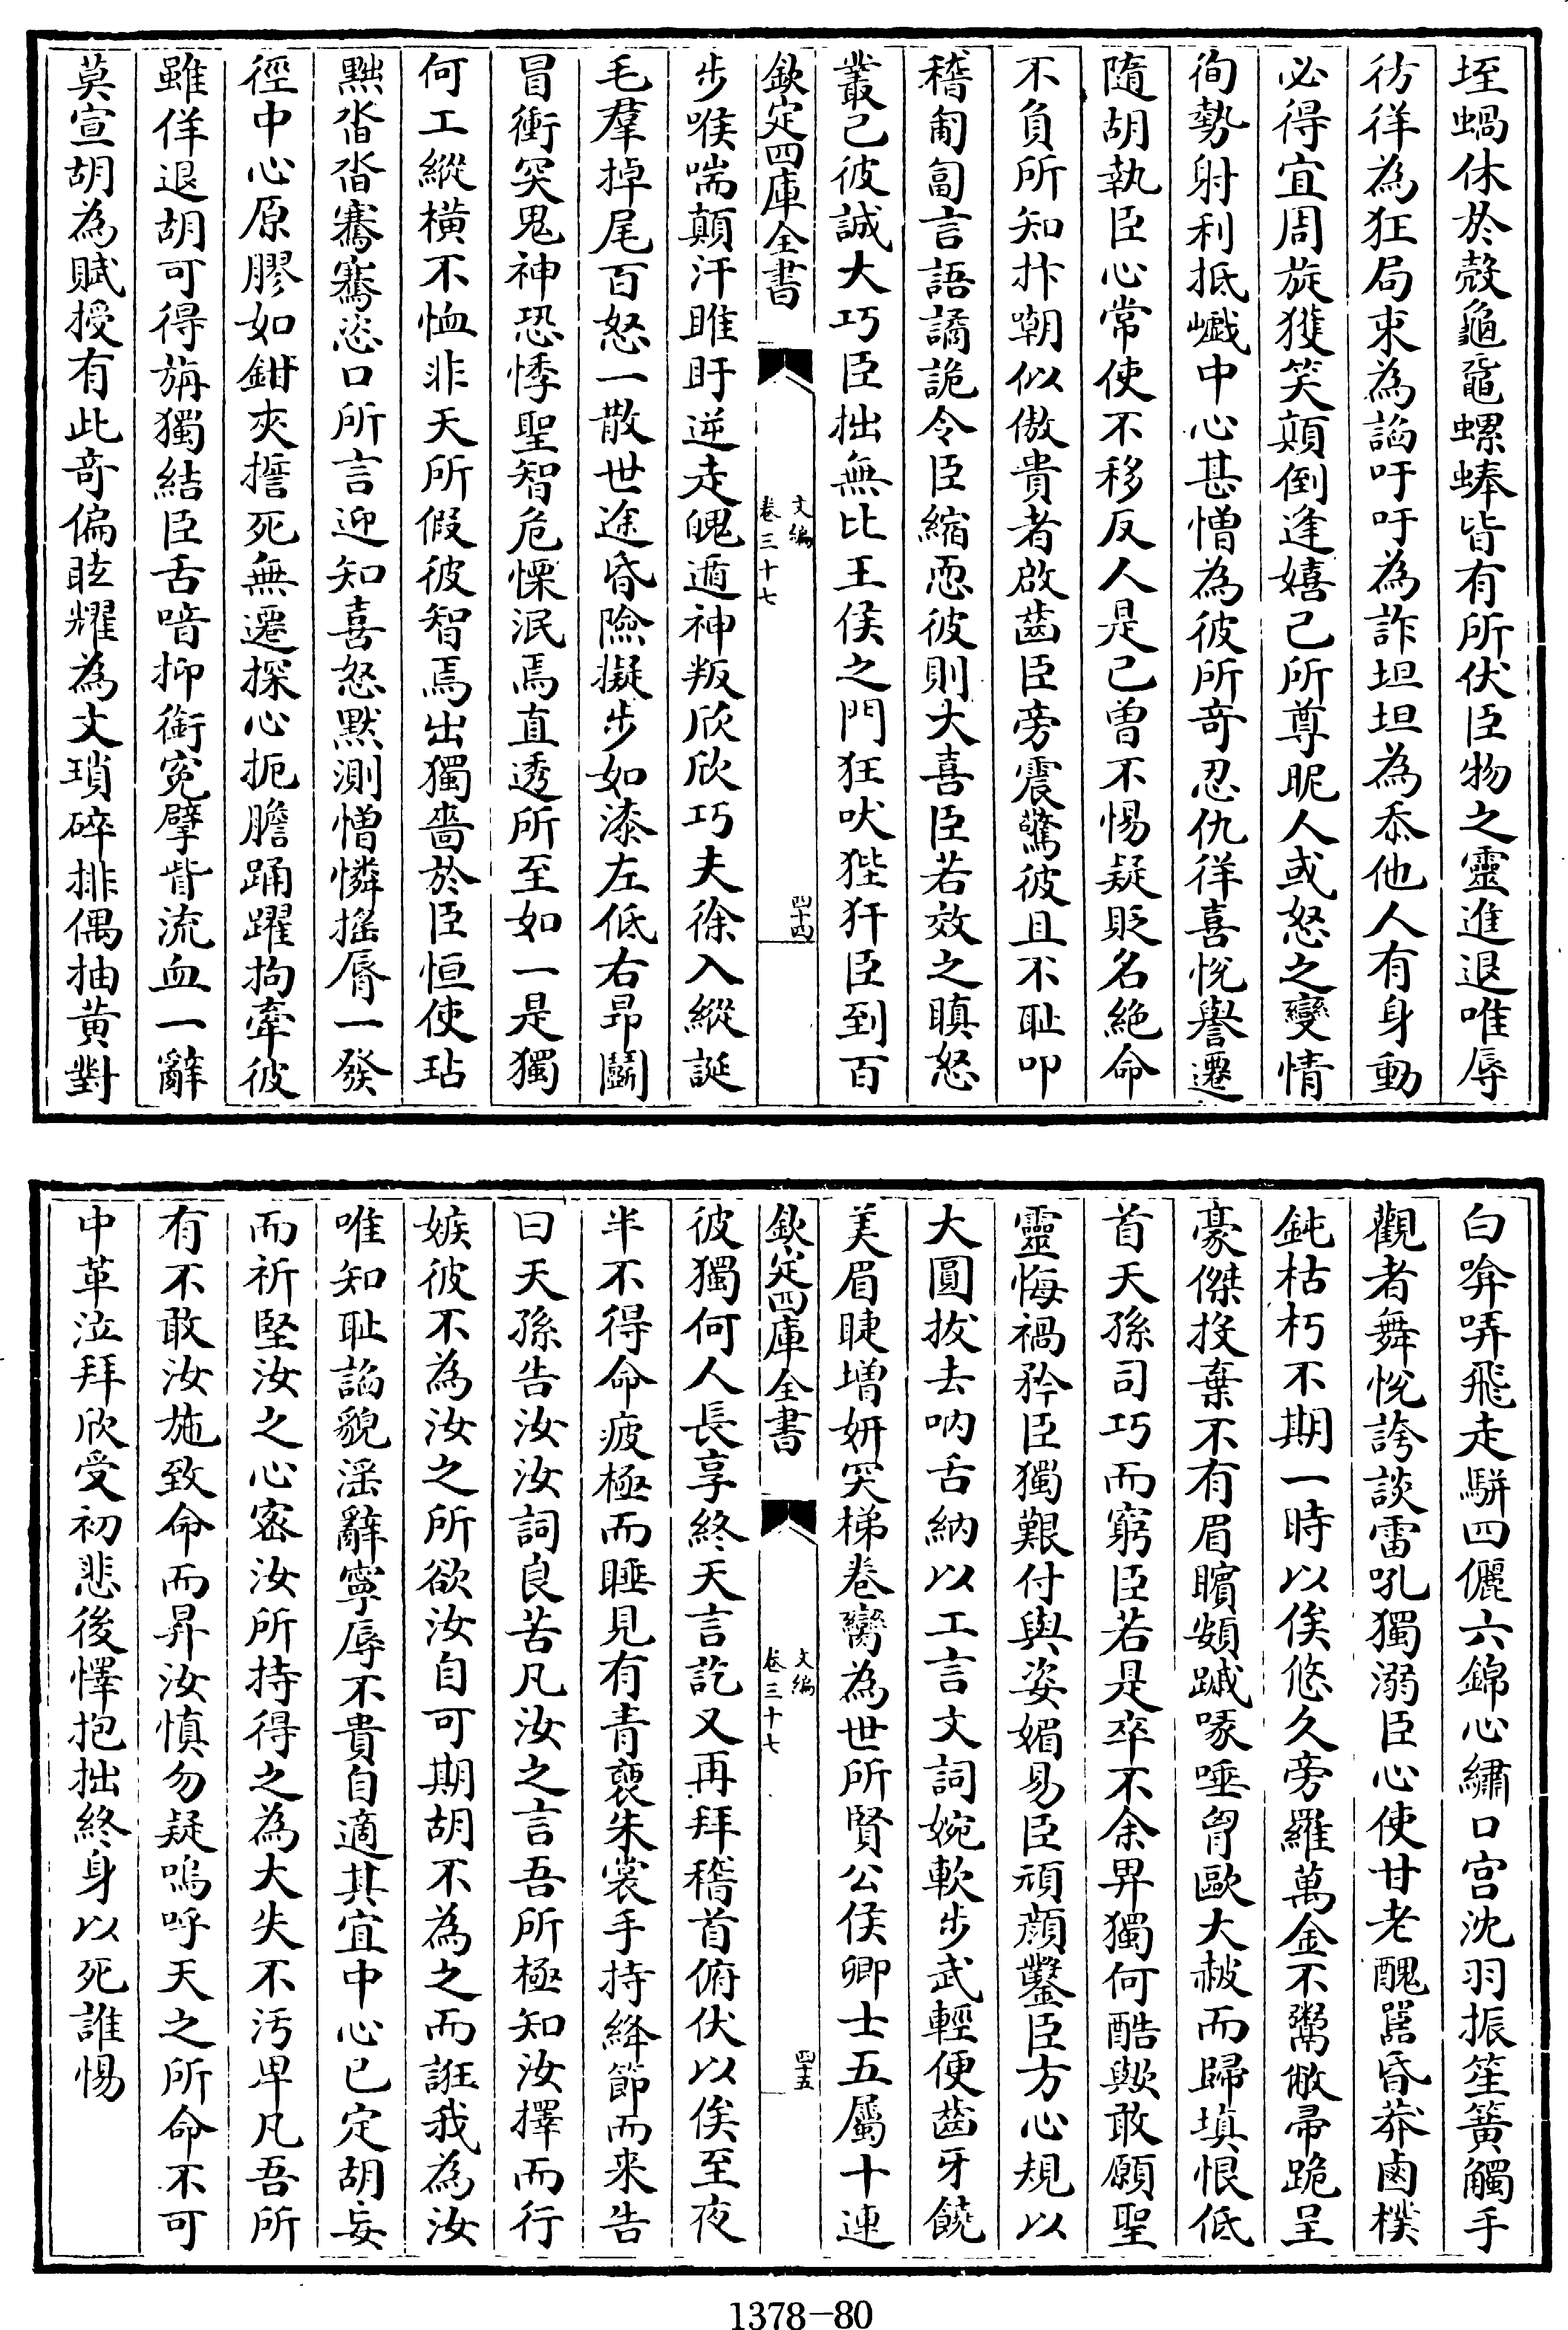 垤蝸休於殼龜黿螺蜯皆有所伏臣物之靈進退唯辱
彷徉為狂局束為諂吁吁為詐坦坦為忝他人有身動
必得宜周旋獲笑顛倒逢嬉己所尊昵人或怒之變情
徇勢射利抵巇中心甚憎為彼所奇忍仇徉喜悅譽遷
隨胡執臣心常使不移反人是己曽不惕疑貶名絶命
不負所知抃嘲似傲貴者啟齒臣旁震驚彼且不恥叩
稽匍匐言語譎詭令臣縮恧彼則大喜臣若效之瞋怒
叢己彼誠大巧臣拙無比王侯之門狂吠狴犴臣到百
欽定四庫全書
文編
卷三十七
四十四
步喉喘顛汗睢盱逆走魄遁神叛欣欣巧夫徐入縱誕
毛羣掉尾百怒一散世途昏險擬步如漆左低右昂鬭
冒衝突鬼神恐悸聖智危慄泯焉直透所至如一是獨
何工縱横不恤非天所假彼智焉出獨嗇於臣恒使玷
黜沓沓騫騫恣口所言迎知喜怒黙測憎憐搖脣一發
徑中心原膠如鉗夾誓死無遷探心扼膽踊躍拘牽彼
雖佯退胡可得旃獨結臣舌喑抑銜寃擘眥流血一辭
莫宣胡為賦授有此竒偏眩耀為文瑣碎排偶抽黄對
白啽哢飛走駢四儷六錦心繡口宫沈羽振笙簧觸手
觀者舞悅誇談雷吼獨溺臣心使甘老醜嚚昏莽鹵樸
鈍枯朽不期一時以俟悠久旁羅萬金不鬻敝帚跪呈
豪傑投棄不有眉矉頞蹙喙唾胷歐大赧而歸填恨低
首天孫司巧而窮臣若是卒不余畀獨何酷歟敢願聖
靈悔禍矜臣獨艱付與姿媚易臣頑顔鑿臣方心規以
大圓拔去吶舌納以工言文詞婉軟步武輕便齒牙饒
美眉睫増妍突梯卷臠為世所賢公侯卿士五屬十連
欽定四庫全書
文編
卷三十七
四十五
彼獨何人長享終天言訖又再拜稽首俯伏以俟至夜
半不得命疲極而睡見有青褎朱裳手持絳節而来告
曰天孫告汝汝詞良苦凡汝之言吾所極知汝擇而行
嫉彼不為汝之所欲汝自可期胡不為之而誑我為汝
唯知恥諂貌淫辭寧辱不貴自適其宜中心已定胡妄
而祈堅汝之心宻汝所持得之為大失不汚卑凡吾所
有不敢汝施致命而昇汝慎勿疑嗚呼天之所命不可
中革泣拜欣受初悲後懌抱拙終身以死誰惕
1378-80